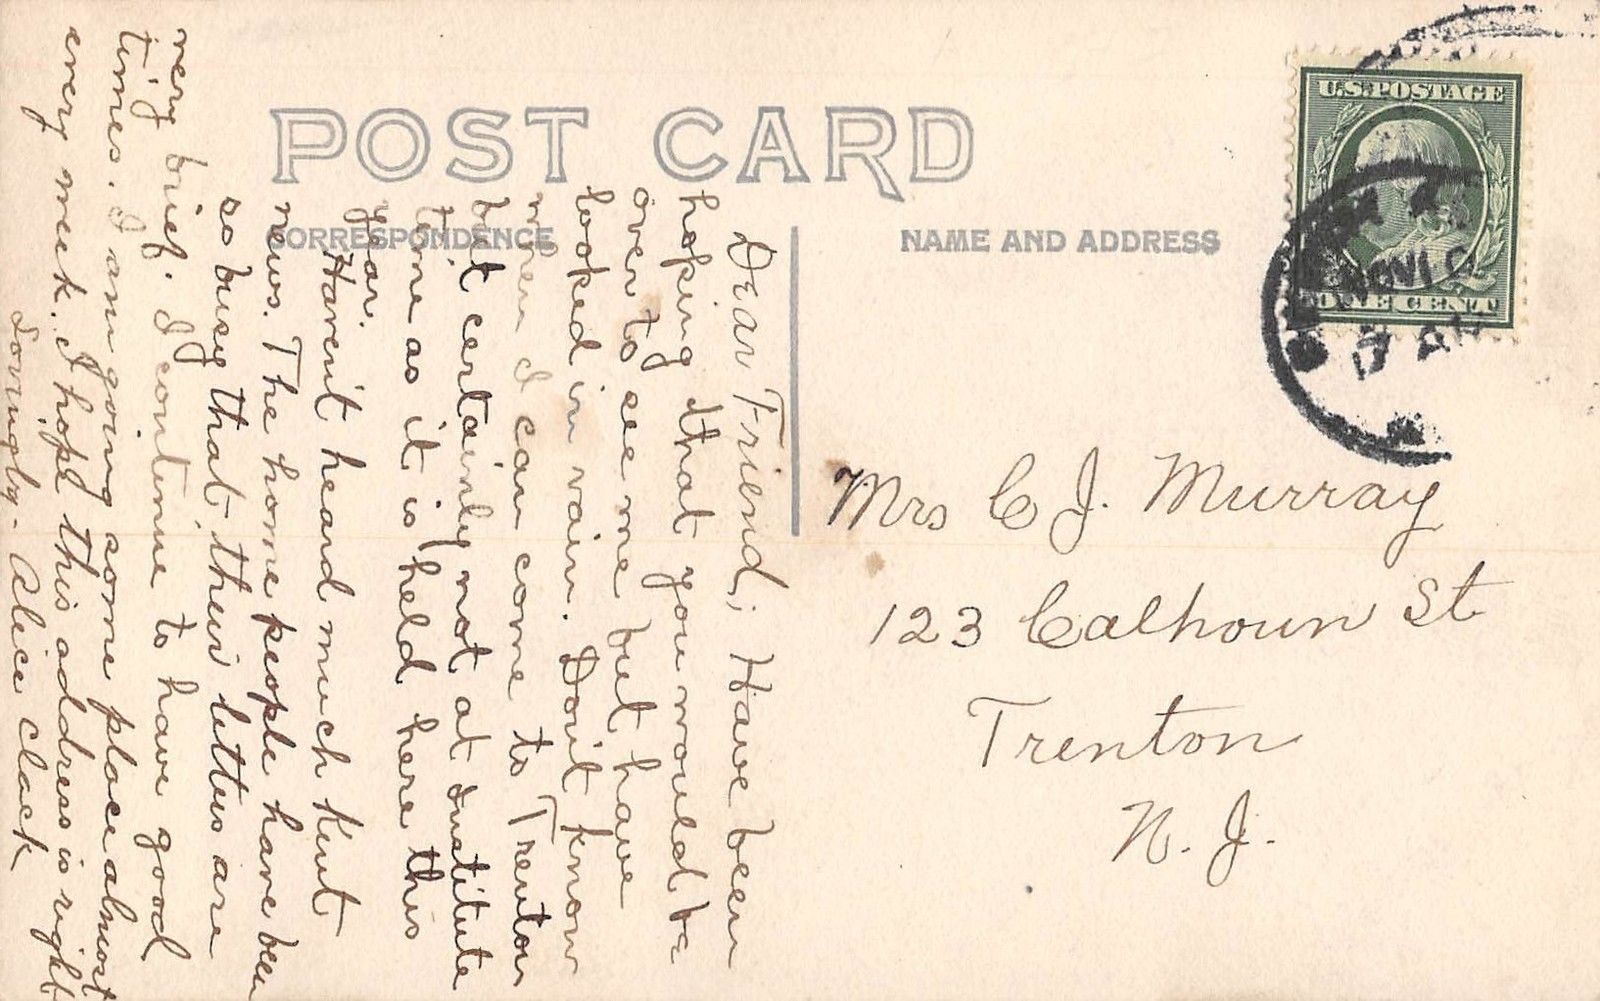 POST CARD
CORRESPONDENCE
NAME AND ADDRESS
U.S. POSTAGE
ONE CENT
NOV
AM
Dear Friend; Have been
hoping that you would be
over to see me but have
looked in vain. Don't know
when I can come to Trenton
but certainly not at Institute
time as it is held here this
year.
Haven't heard much Kent
news. The home people have been
so busy that their letters are
very brief. I continue to have good
times. I am going some place almost
every week. I hope this address is right
Lovingly - Alice Clack
Mrs C J. Murray
123 Calhoun St
Trenton
N. J.